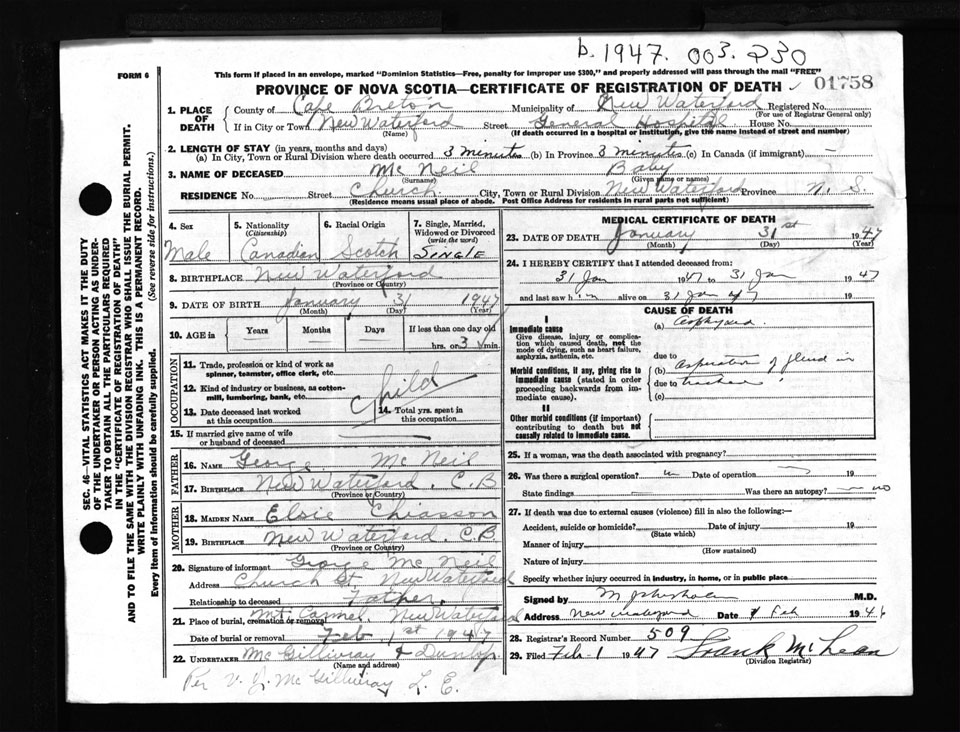 b. 1947. 003. 230
FORM 6
This form if placed in an envelope, marked "Dominion Statistics—Free, penalty for improper use $300," and properly addressed will pass through the mail "FREE"
PROVINCE OF NOVA SCOTIA—CERTIFICATE OF REGISTRATION OF DEATH 01758
1. PLACE OF DEATH County of Cape Breton Municipality of New Waterford Registered No.
(For use of Registrar General only)
If in City or Town New Waterford Street General Hospital House No.
(Name) (If death occurred in a hospital or institution, give the name instead of street and number)
2. LENGTH OF STAY (in years, months and days)
(a) In City, Town or Rural Division where death occurred 3 minutes (b) In Province 3 minutes (c) In Canada (if immigrant) —
3. NAME OF DECEASED Mc Neil Baby
(Surname) (Given name or names)
RESIDENCE No. Street Church City, Town or Rural Division New Waterford Province N. S.
(Residence means usual place of abode. Post Office Address for residents in rural parts not sufficient)
4. Sex 5. Nationality (Citizenship) 6. Racial Origin 7. Single, Married, Widowed or Divorced (write the word)
Male Canadian Scotch SINGLE
8. BIRTHPLACE New Waterford
(Province or Country)
9. DATE OF BIRTH January 31 1947
(Month) (Day) (Year)
10. AGE in Years Months Days If less than one day old
hrs. or 3 min.
OCCUPATION
11. Trade, profession or kind of work as spinner, teamster, office clerk, etc.
12. Kind of industry or business, as cotton-mill, lumbering, bank, etc.
Child
13. Date deceased last worked at this occupation 14. Total yrs. spent in this occupation
15. If married give name of wife or husband of deceased
FATHER
16. NAME George Mc Neil
17. BIRTHPLACE New Waterford. C. B
(Province or Country)
MOTHER
18. MAIDEN NAME Elsie Chiasson
19. BIRTHPLACE New Waterford. C. B.
(Province or Country)
20. Signature of informant George Mc Neil
Address Church St. New Waterford
Relationship to deceased Father.
21. Place of burial, cremation or removal Mt. Carmel New Waterford
Date of burial or removal Feb 1st 1947
22. UNDERTAKER Mc Gillivray & Dunlop.
(Name and address)
Per V. J. Mc Gillivray L. E.
MEDICAL CERTIFICATE OF DEATH
23. DATE OF DEATH January 31st 1947
(Month) (Day) (Year)
24. I HEREBY CERTIFY that I attended deceased from:
31 Jan 1947 to 31 Jan 1947
and last saw him alive on 31 Jan 47 19
CAUSE OF DEATH
I
Immediate cause (a)
Give disease, injury or complication which caused death, not the mode of dying, such as heart failure, asphyxia, asthenia, etc.
due to
Morbid conditions, if any, giving rise to immediate cause (stated in order proceeding backwards from immediate cause). (b) aspiration of fluid in
due to
(c)
II
Other morbid conditions (if important) contributing to death but not causally related to immediate cause.
25. If a woman, was the death associated with pregnancy?
26. Was there a surgical operation? Date of operation 19
State findings Was there an autopsy? no
27. If death was due to external causes (violence) fill in also the following:—
Accident, suicide or homicide? Date of injury 19
(State which)
Manner of injury
(How sustained)
Nature of injury
Specify whether injury occurred in industry, in home, or in public place
Signed by M.D.
Address New Waterford Date 1 Feb 194
28. Registrar's Record Number 509
29. Filed Feb-1 1947 Frank McLean
(Division Registrar)
SEC. 46—VITAL STATISTICS ACT MAKES IT THE DUTY
OF THE UNDERTAKER OR PERSON ACTING AS UNDER-
TAKER TO OBTAIN ALL THE PARTICULARS REQUIRED
IN THE "CERTIFICATE OF REGISTRATION OF DEATH"
AND TO FILE THE SAME WITH THE DIVISION REGISTRAR WHO SHALL ISSUE THE BURIAL PERMIT.
WRITE PLAINLY WITH UNFADING INK. THIS IS A PERMANENT RECORD.
Every item of Information should be carefully supplied. (See reverse side for instructions.)